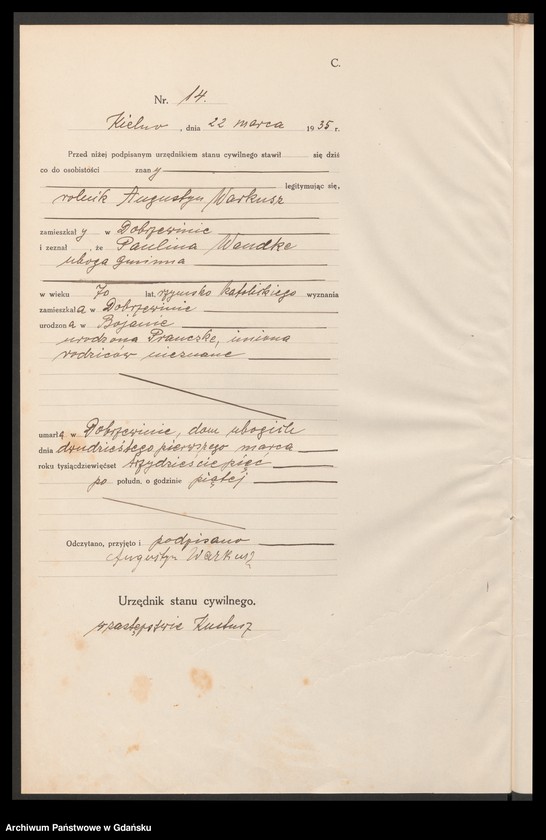 C.
Nr. 14.
Kielno, dnia 22 marca 1935 r.
Przed niżej podpisanym urzędnikiem stanu cywilnego stawił się dziś
co do osobistości znany
legitymując się,
rolnik Augustyn Warkusz
zamieszkały w Dobrzewinie
i zeznał, że Paulina Wendke
uboga gminna
w wieku 70 lat, rzymsko katolickiego wyznania
zamieszkała w Dobrzewinie
urodzona w Bojanie
urodzona Pranczke, imiona
rodziców nieznane
umarła w Dobrzewinie, dom ubogich
dnia dwudziestego pierwszego marca
roku tysiącdziewięćset trzydzieście pięć
po połudn. o godzinie piątej
Odczytano, przyjęto i podpisano
Augustyn Warkusz
Urzędnik stanu cywilnego.
w zastępstwie Kustusz
Archiwum Państwowe w Gdańsku